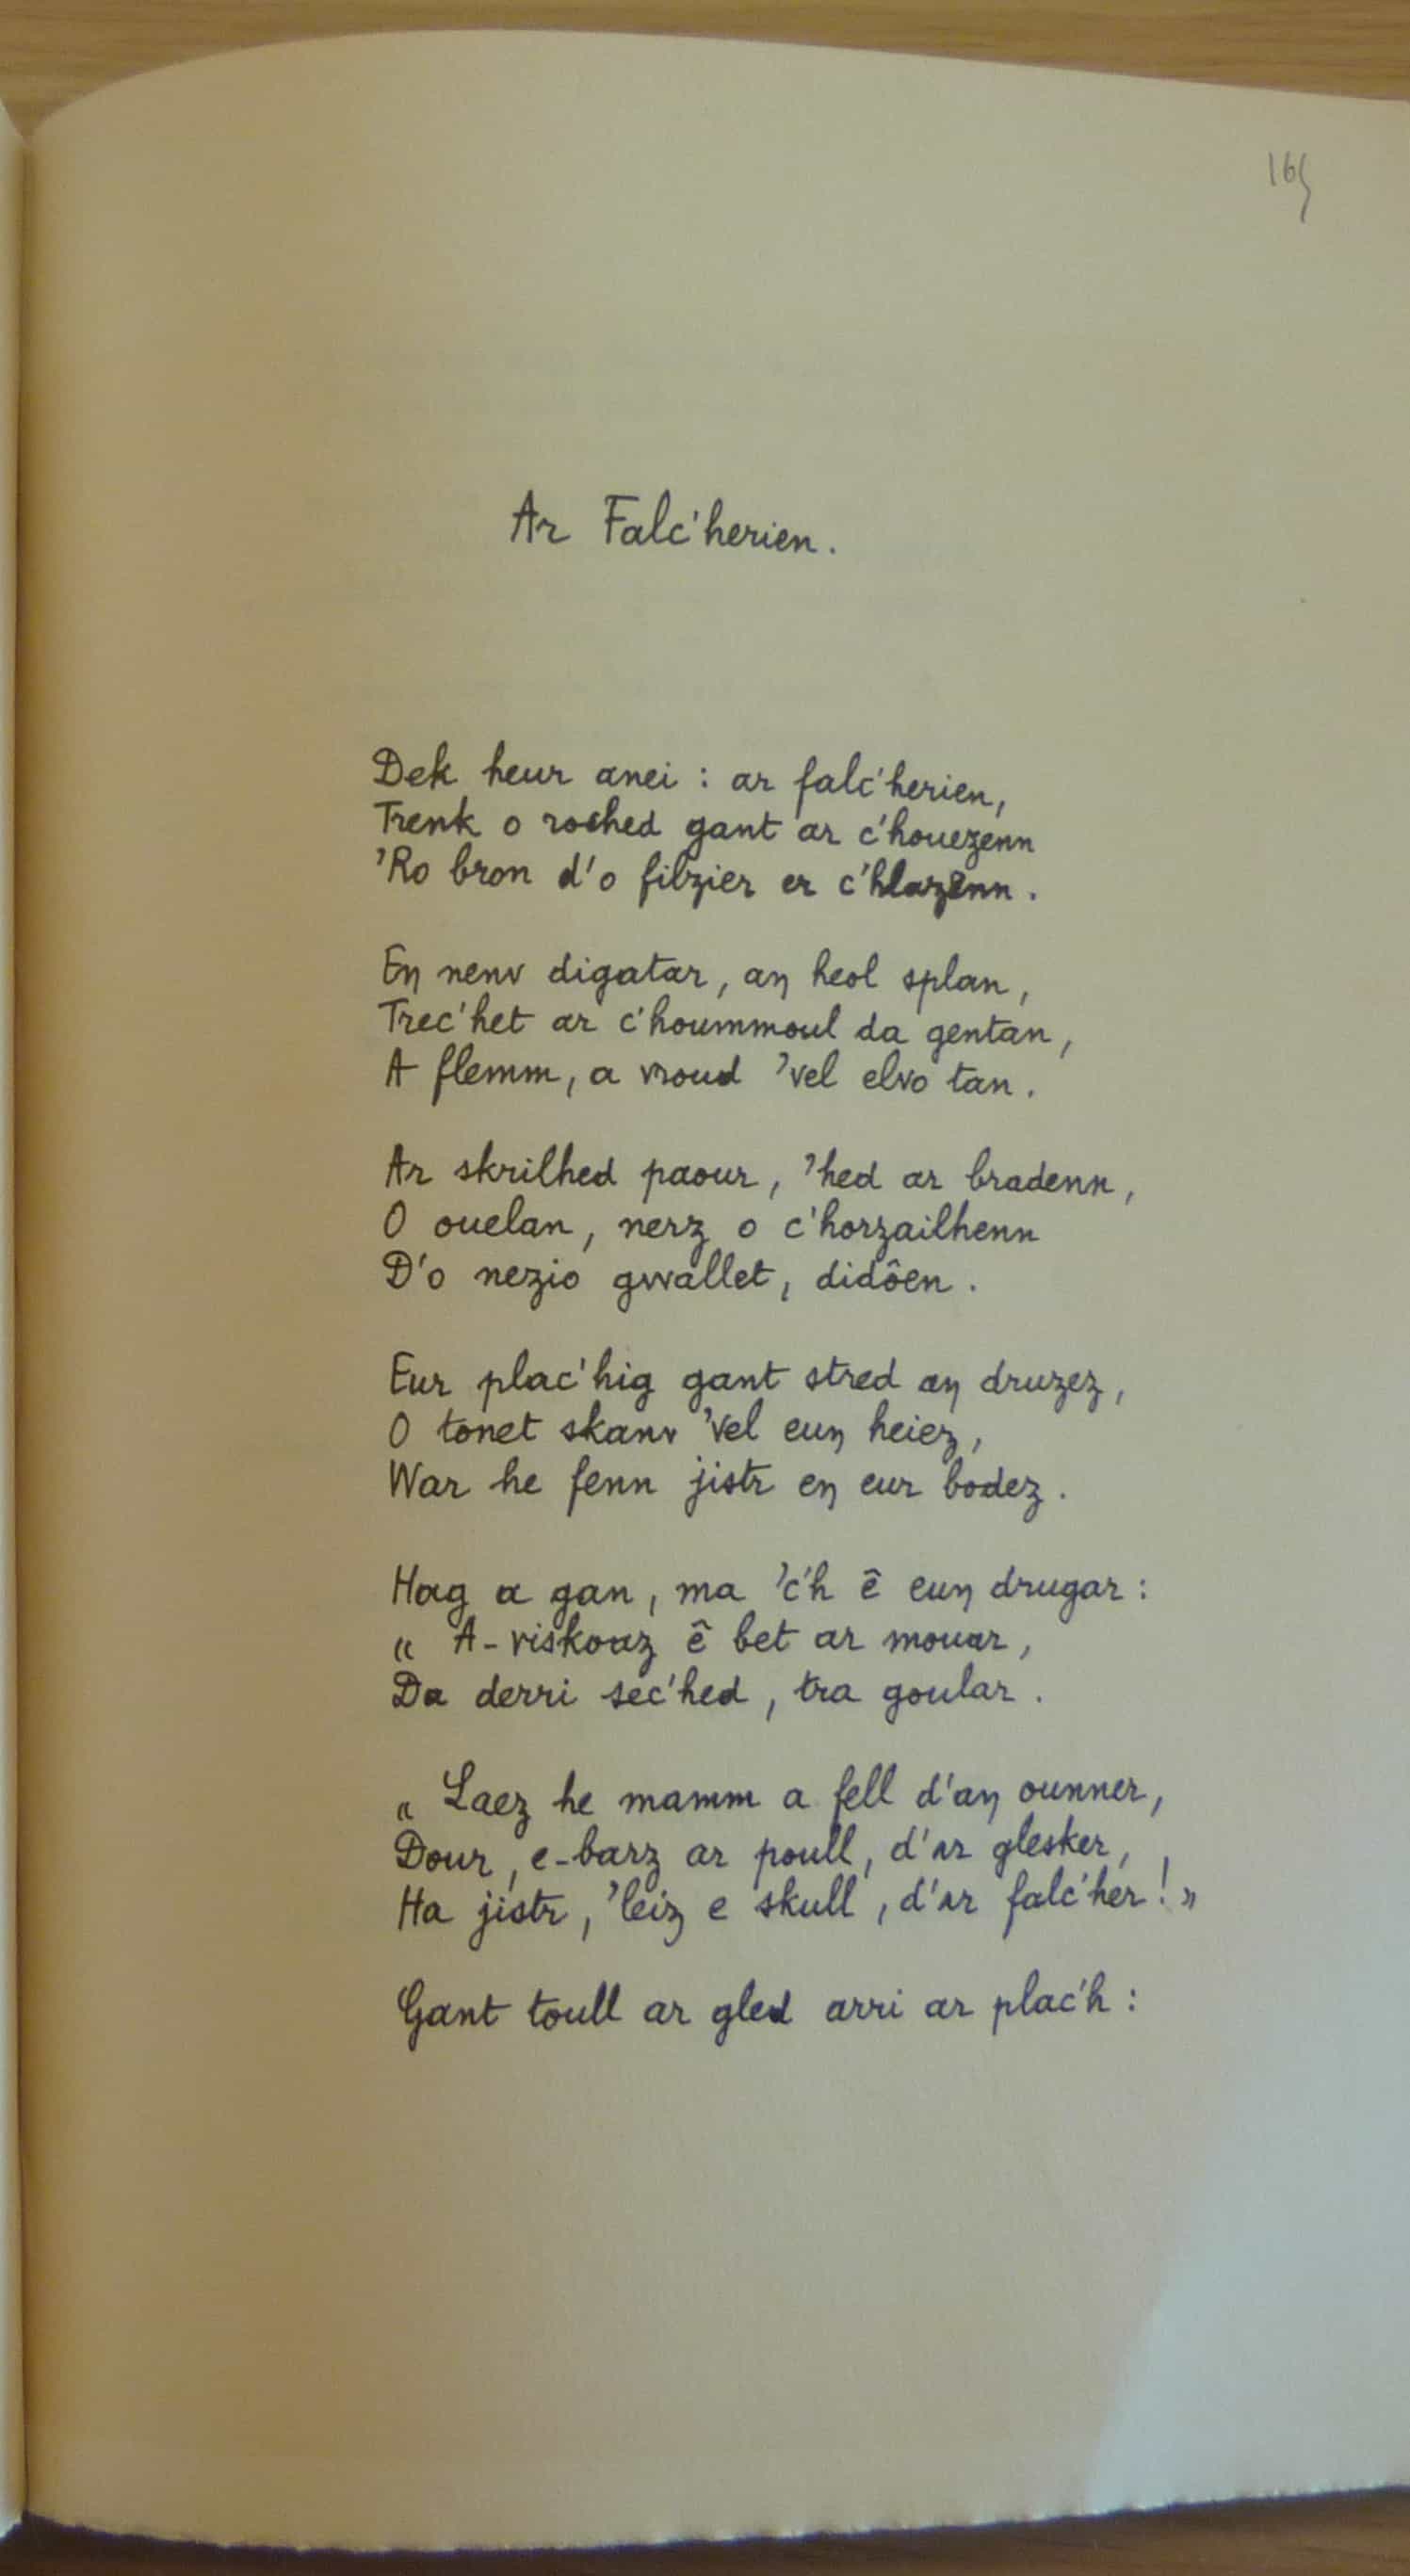 165
Ar Falc'herien.
Dek heur anei : ar falc'herien,
Trenk o roched gant ar c'houezenn
'Ro bron d'o filzier er c'hlazenn.
Eŋ nenv digatar, aŋ heol splan,
Trec'het ar c'hoummoul da gentan,
A flemm, a vroud 'vel elvo tan.
Ar skrilhed paour, 'hed ar bradenn,
O ouelan, nerz o c'horzailhenn
D'o nezio gwallet, didôen.
Eur plac'hig gant stred aŋ druzez,
O tonet skanv 'vel euŋ heiez,
War he fenn jistr eŋ eur bodez.
Hag a gan, ma 'c'h ê euŋ drugar :
« A-viskoaz ê bet ar mouar,
Da derri sec'hed, tra goular.
« Laez he mamm a fell d'aŋ ounner,
Dour, e-barz ar poull, d'ar glesker,
Ha jistr, 'leiz e skull, d'ar falc'her ! »
Gant toull ar gled arri ar plac'h :